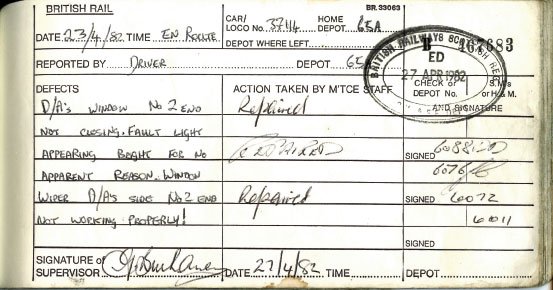 BRITISH RAIL
BR.33063
DATE 23/4/82 TIME EN ROUTE
CAR/ LOCO No. 37114 HOME DEPOT 65A
DEPOT WHERE LEFT
B 467683
REPORTED BY DRIVER DEPOT 65
BRITISH RAILWAYS SCOTTISH REG
ED
27 APR 1982
DEFECTS
ACTION TAKEN BY M'TCE STAFF
CHECK or DEPOT No.
S.M's or H & M.
AND SIGNATURE
D/A's WINDOW No 2 END Repaired
NOT CLOSING. FAULT LIGHT
APPEARING BRIGHT FOR NO REPAIRED SIGNED
APPARENT REASON. WINDOW 6076
WIPER D/A's SIDE No 2 END Repaired SIGNED 6072
NOT WORKING PROPERLY! 6011
SIGNED
SIGNATURE OF SUPERVISOR DATE 27/4/82 TIME DEPOT